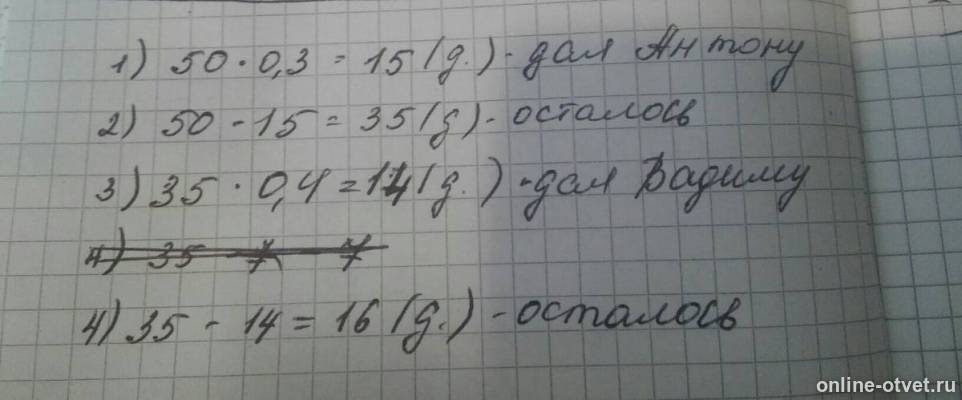 1) 50 · 0,3 = 15 (д.) - дал Антону
2) 50 - 15 = 35 (д) - осталось
3) 35 · 0,4 = 14 (д.) - дал Вадиму
4) 35 - 7 7
4) 35 - 14 = 16 (д.) - осталось
online-otvet.ru